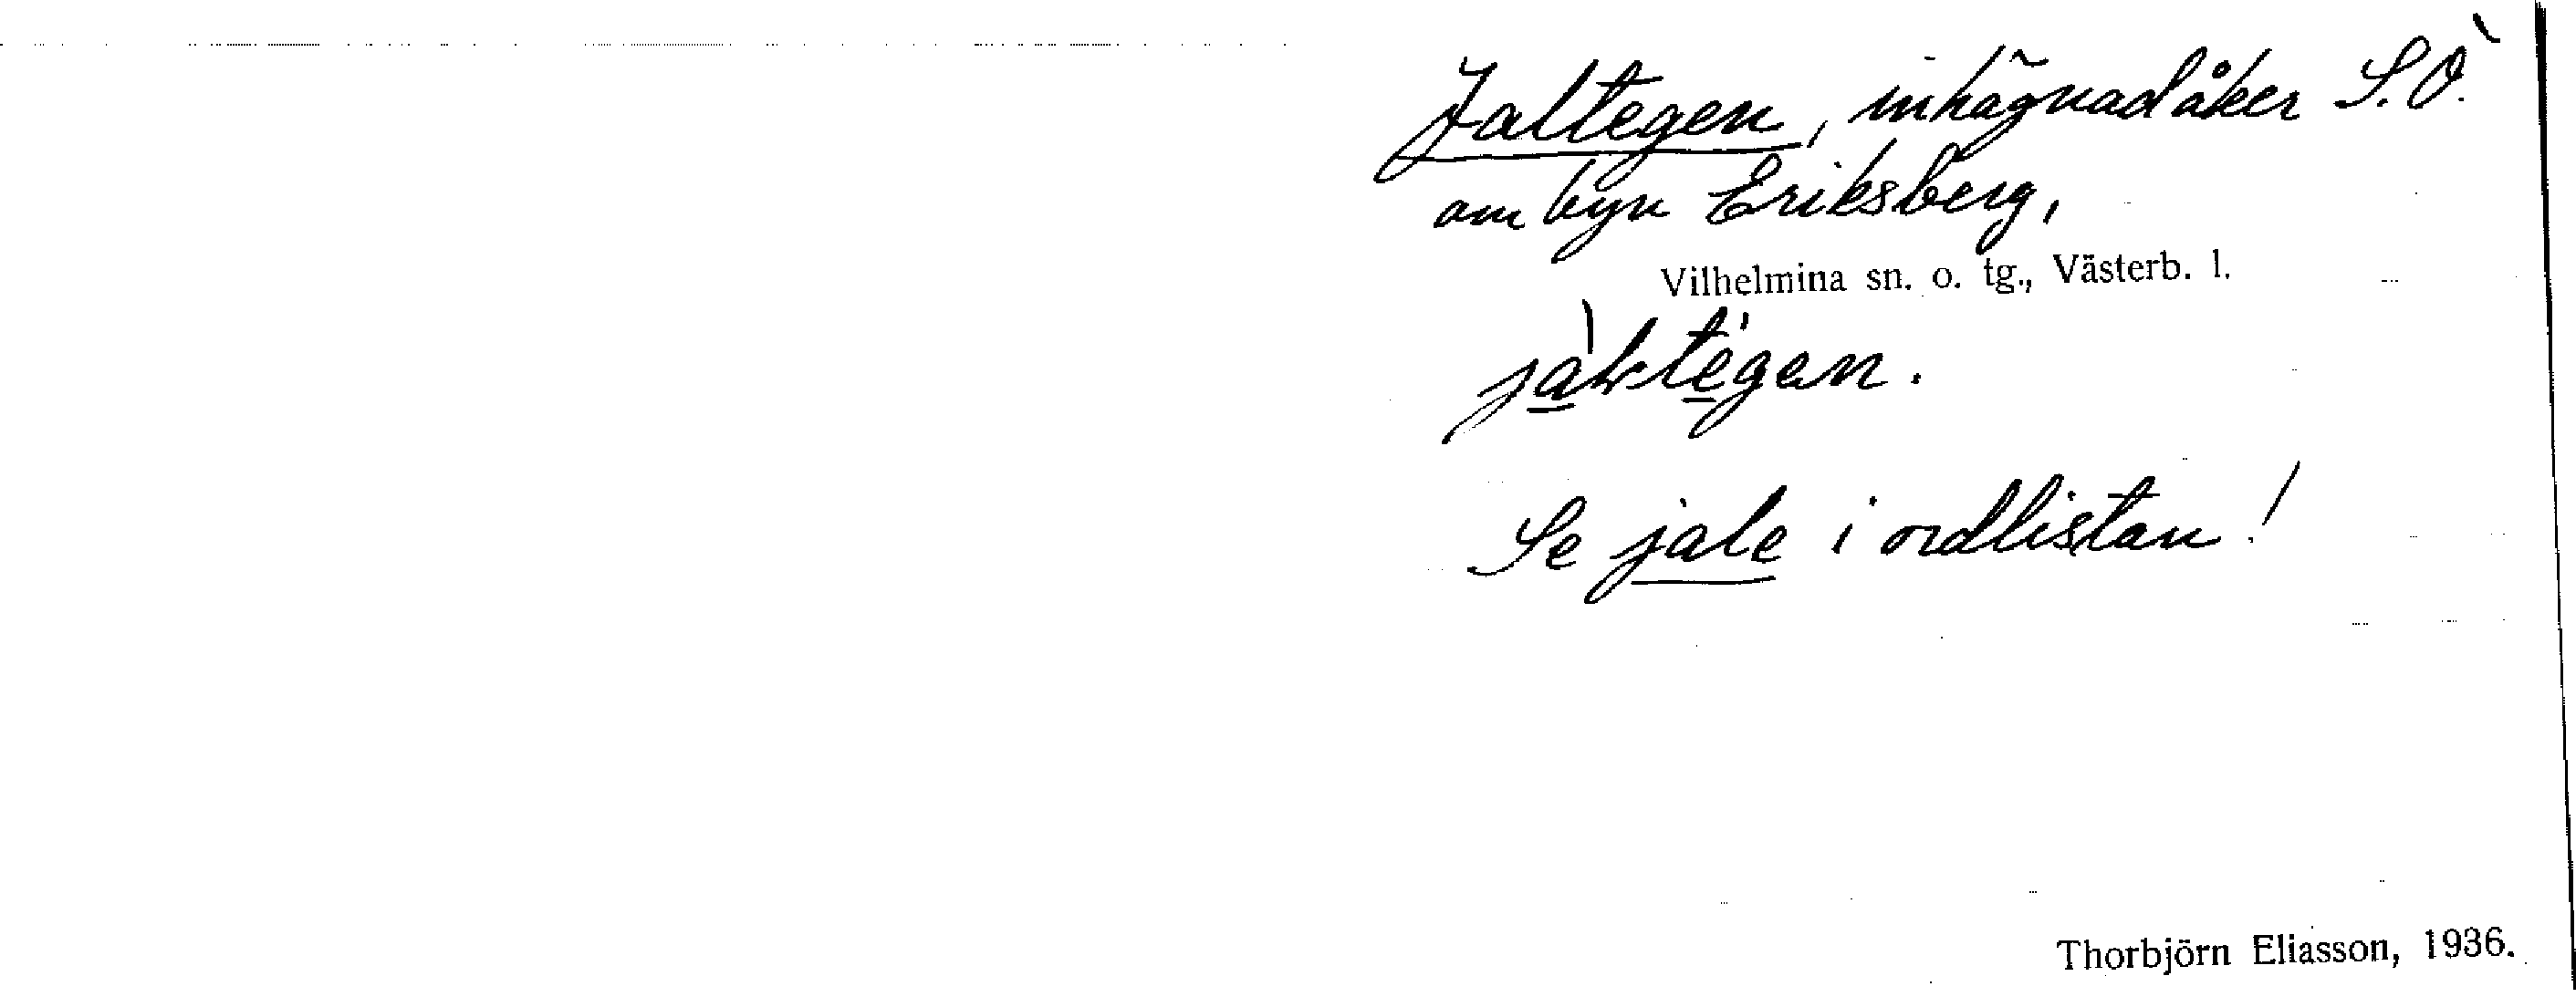 Jaltegen, inhägnad åker S.Ö.
om byn Eriksberg,
Vilhelmina sn. o. tg., Västerb. l.
Se jale i ordlistan!
Thorbjörn Eliasson, 1936.